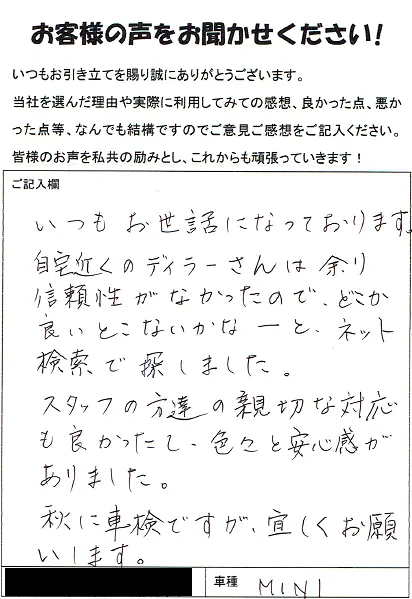 お客様の声をお聞かせください!
いつもお引き立てを賜り誠にありがとうございます。
当社を選んだ理由や実際に利用してみての感想、良かった点、悪か
った点等、なんでも結構ですのでご意見ご感想をご記入ください。
皆様のお声を私共の励みとし、これからも頑張っていきます!
ご記入欄
いつも お世話になっております。
自宅近くのディラーさんは 余り
信頼性がなかったので、どこか
良いとこないかなーと、ネット
検索で 探しました。
スタッフの方達の親切な対応
も良かったし、色々と安心感が
ありました。
秋に車検ですが、宜しくお願
いします。
車種 MINI